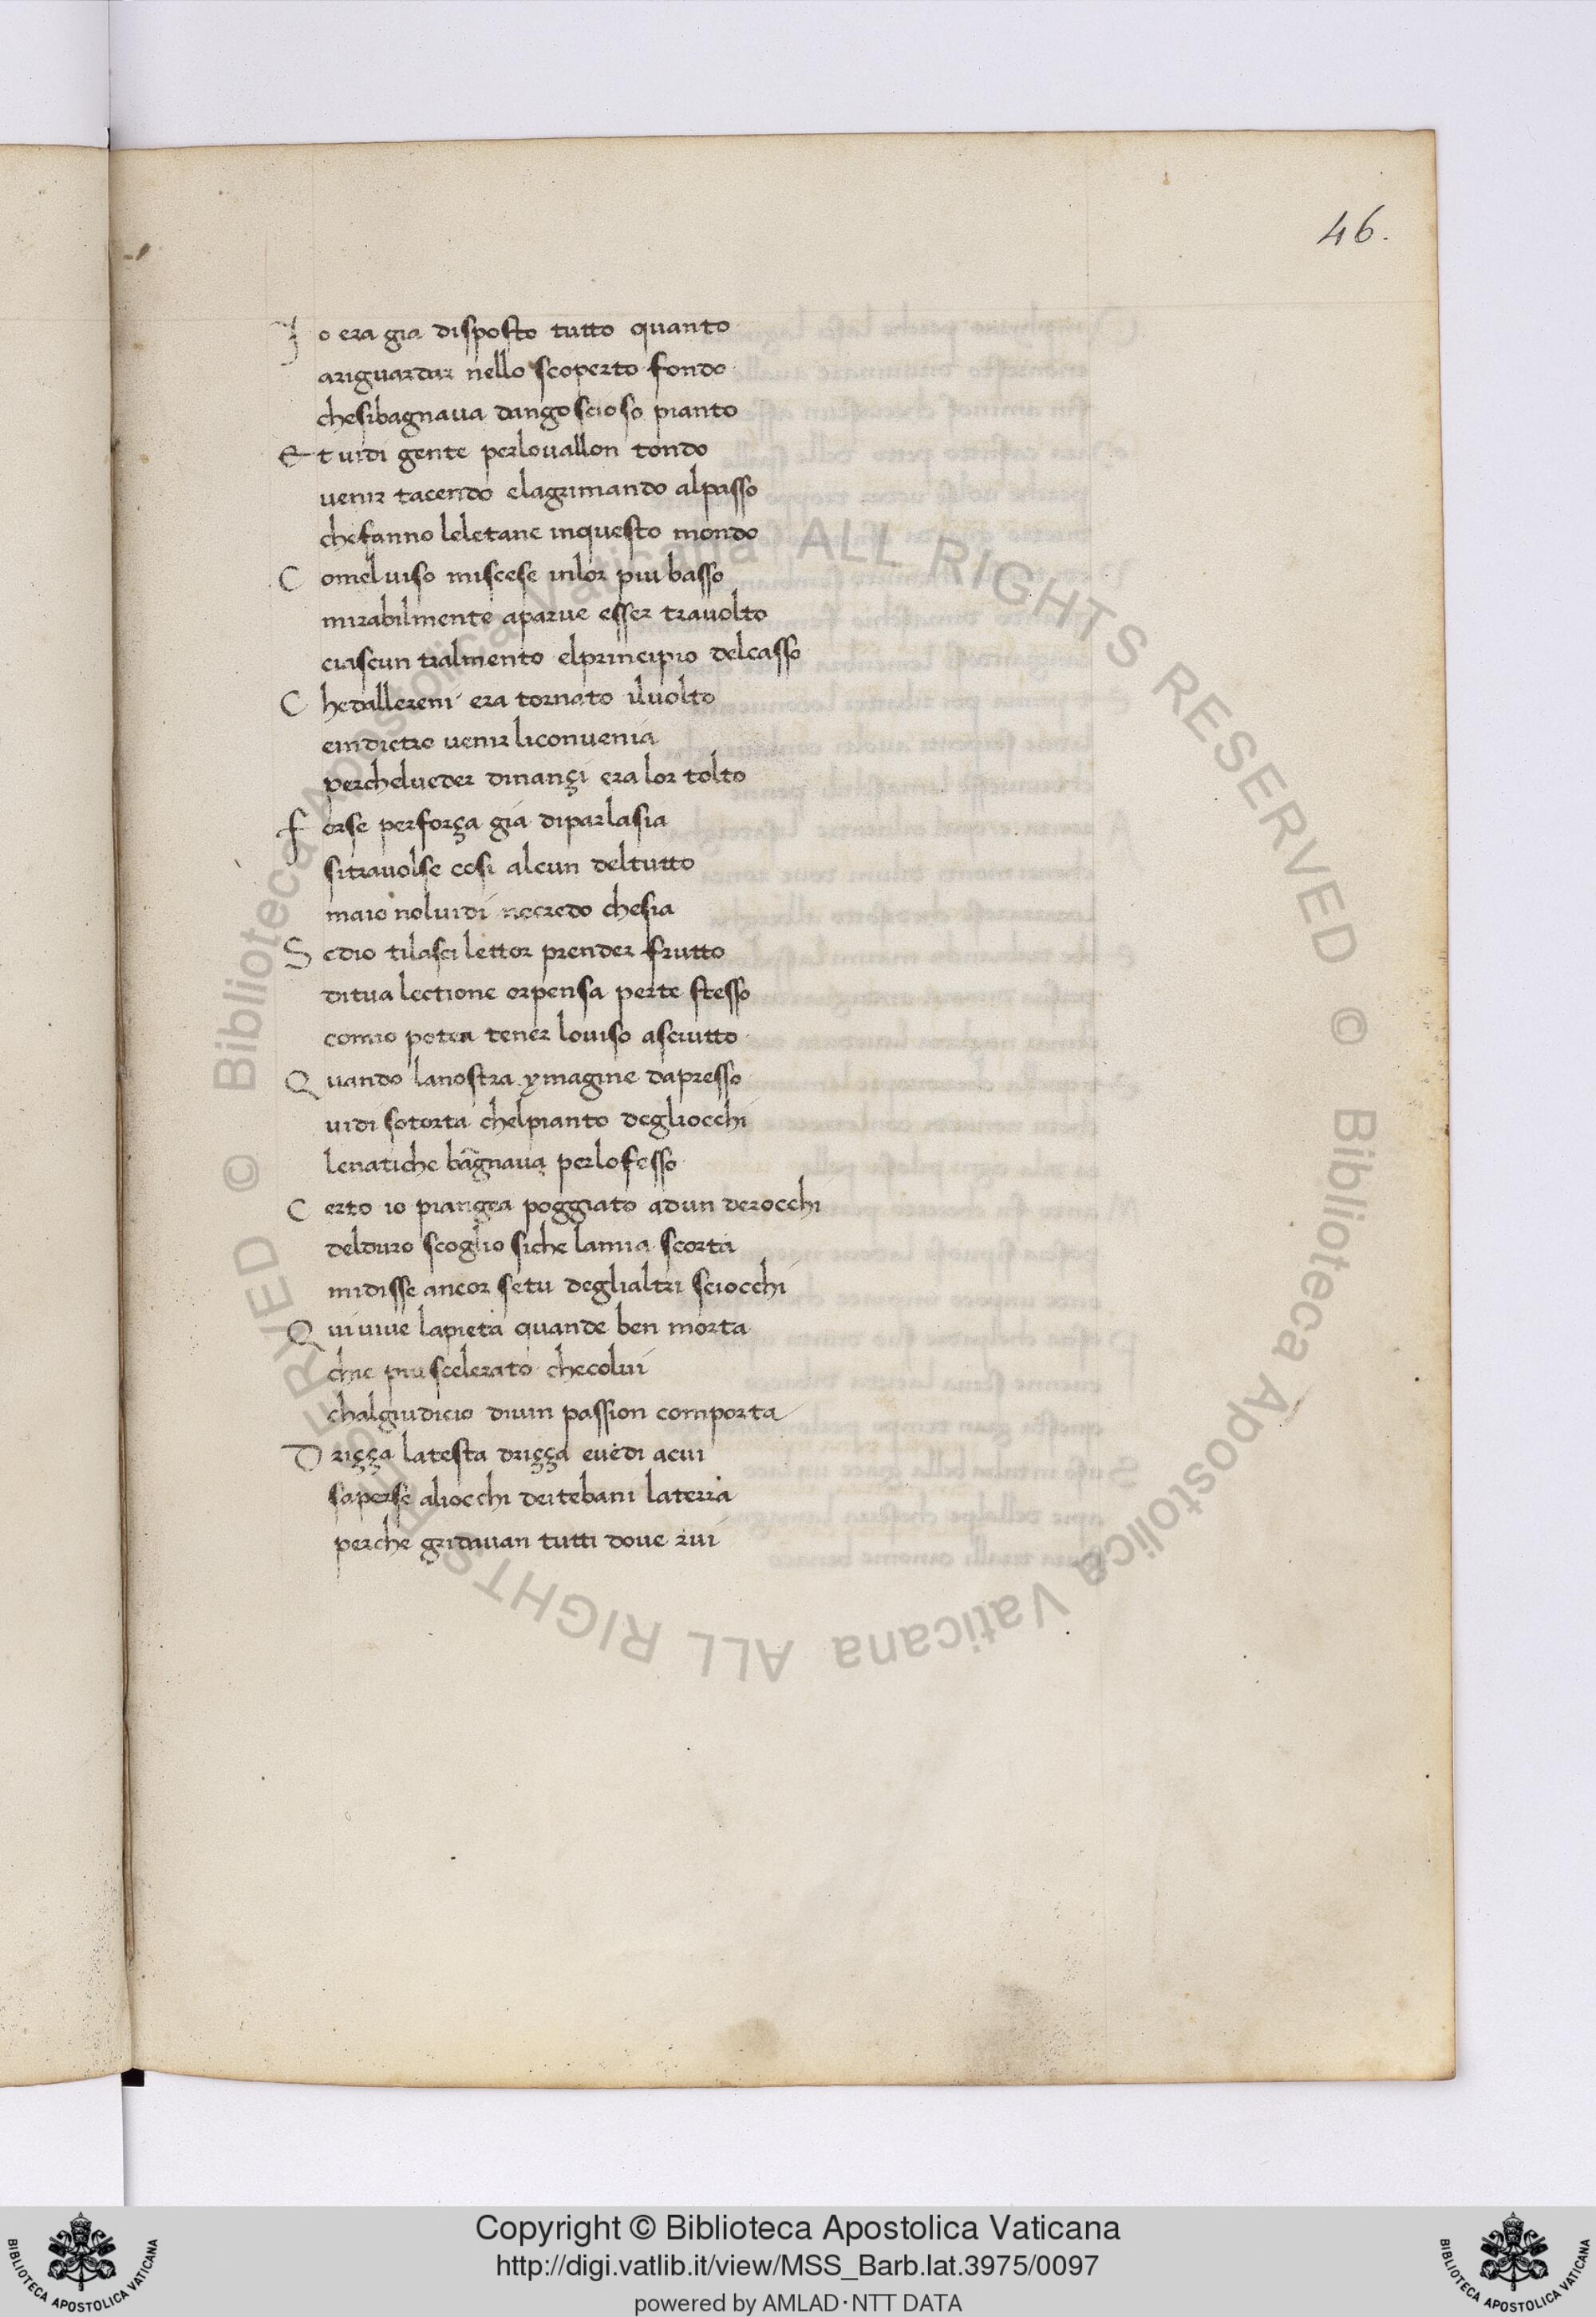 46.
Io era gia disposto tutto quanto
ariguardar nello scoperto fondo
chesibagnaua dangoscioso pianto
Et uidi gente perlouallon tondo
uenir tacendo elagrimando alpasso
chefanno leletane inquesto mondo
Comel uiso miscese inlor piu basso
mirabilmente aparue esser trauolto
ciascun tralmento elprincipio delcasso
Chedallereni era tornato iluolto
eindietro uenir liconuenia
perchelueder dinançi era lor tolto
Forse perforça gia diparlasia
sitrauolse cosi alcun deltutto
maio noluidi necredo chesia
Sedio tilasci lettor prender frutto
ditua lectione orpensa perte stesso
comio potea tener louiso asciutto
Quando lanostra ymagine dapresso
uidi sotorta chelpianto degliocchi
lenatiche bagnaua perlofesso
Certo io piangea poggiato adun derocchi
delduro scoglio siche lamia scorta
midisse ancor setu deglialtri sciocchi
Qui uiue lapieta quande ben morta
chie piu scelerato checolui
chalgiudicio diuin passion comporta
Driçça latesta driçça euedi acui
saperse aliocchi deitebani laterra
perche gridauan tutti doue rui
© Biblioteca Apostolica Vaticana ALL RIGHTS RESERVED
© Biblioteca Apostolica Vaticana ALL RIGHTS RESERVED
Copyright © Biblioteca Apostolica Vaticana
http://digi.vatlib.it/view/MSS_Barb.lat.3975/0097
powered by AMLAD·NTT DATA
BIBLIOTECA APOSTOLICA VATICANA
BIBLIOTECA APOSTOLICA VATICANA